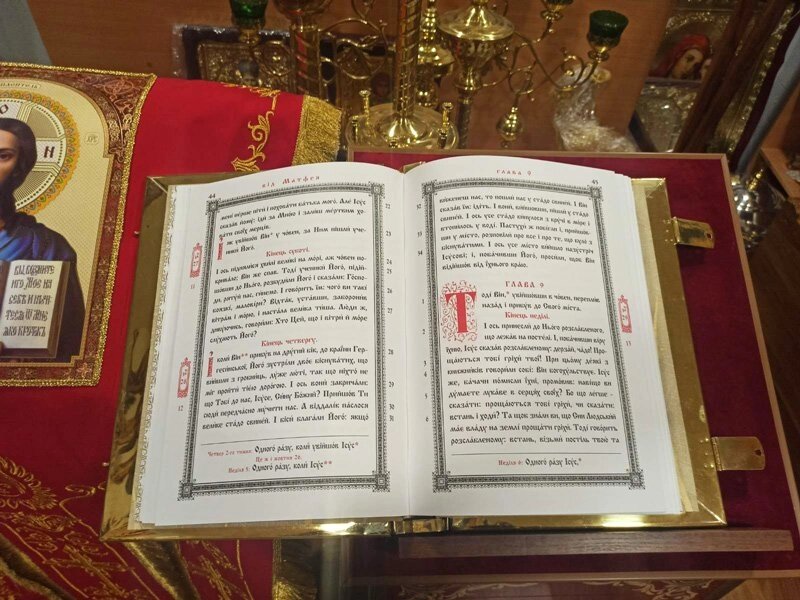 44
від Матфея
мені перше піти і поховати батька мого. Але Ісус
сказав йому: іди за Мною і залиш мертвим хо-
вати своїх мерців.
І як увійшов Він* у човен, за Ним пішли уче-
ники Його.
Кінець суботі.
І ось піднялися хвилі великі на морі, аж човен по-
кривало; Він же спав. Тоді ученики Його, підій-
шовши до Нього, розбудили Його і сказали: Госпо-
ди, рятуй нас, гинемо. І говорить їм: чого ви такі
боязкі, маловіри? Відтак, уставши, заборонив
вітрам і морю, і настала велика тиша. Люди ж,
дивуючись, говорили: Хто Цей, що і вітри й море
слухають Його?
Кінець четвергу.
І коли Він** прибув на другий бік, до країни Гер-
гесинської, Його зустріли двоє біснуватих, що
вийшли з гробниць, дуже люті, так що ніхто не
міг пройти тією дорогою. І ось вони закричали:
що Тобі до нас, Ісусе, Сину Божий? Прийшов Ти
сюди передчасно мучити нас. А віддалік паслося
велике стадо свиней. І біси благали Його: якщо
Четвер 2-го тижня: Одного разу, коли увійшов Ісус*
Це ж і жовтня 26.
Неділя 5: Одного разу, коли Ісус**
22
23
24
25
26
27
28
29
30
31
11
12
глава 9
45
виженеш нас, то пошли нас у стадо свиней. І Він
сказав їм: ідіть. І вони, вийшовши, пішли у стадо
свиней. І ось усе стадо кинулося з кручі в море і
втопилось у воді. Пастухи ж побігли і, прийшов-
ши у місто, розповіли про все і про те, що було з
біснуватими. І ось усе місто вийшло назустріч
Ісусові; і, побачивши Його, просили, щоб Він
відійшов від їхнього краю.
ГЛАВА 9
Тоді Він, увійшовши в човен, переплив
назад і прибув до Свого міста.
Кінець неділі.
І ось принесли до Нього розслабленого,
що лежав на постелі. І, побачивши віру
їхню, Ісус сказав розслабленому: дерзай, чадо! Про-
щаються тобі гріхи твої! При цьому деякі з
книжників говорили собі: Він богохульствує. Ісус
же, бачачи помисли їхні, промовив: навіщо ви
думаєте лукаве в серцях своїх? Бо що легше -
сказати: прощаються тобі гріхи, чи сказати:
встань і ходи? Та щоб знали ви, що Син Людський
має владу на землі прощати гріхи. Тоді говорить
розслабленому: встань, візьми постіль твою та
Неділя 6: Одного разу Ісус,*
13